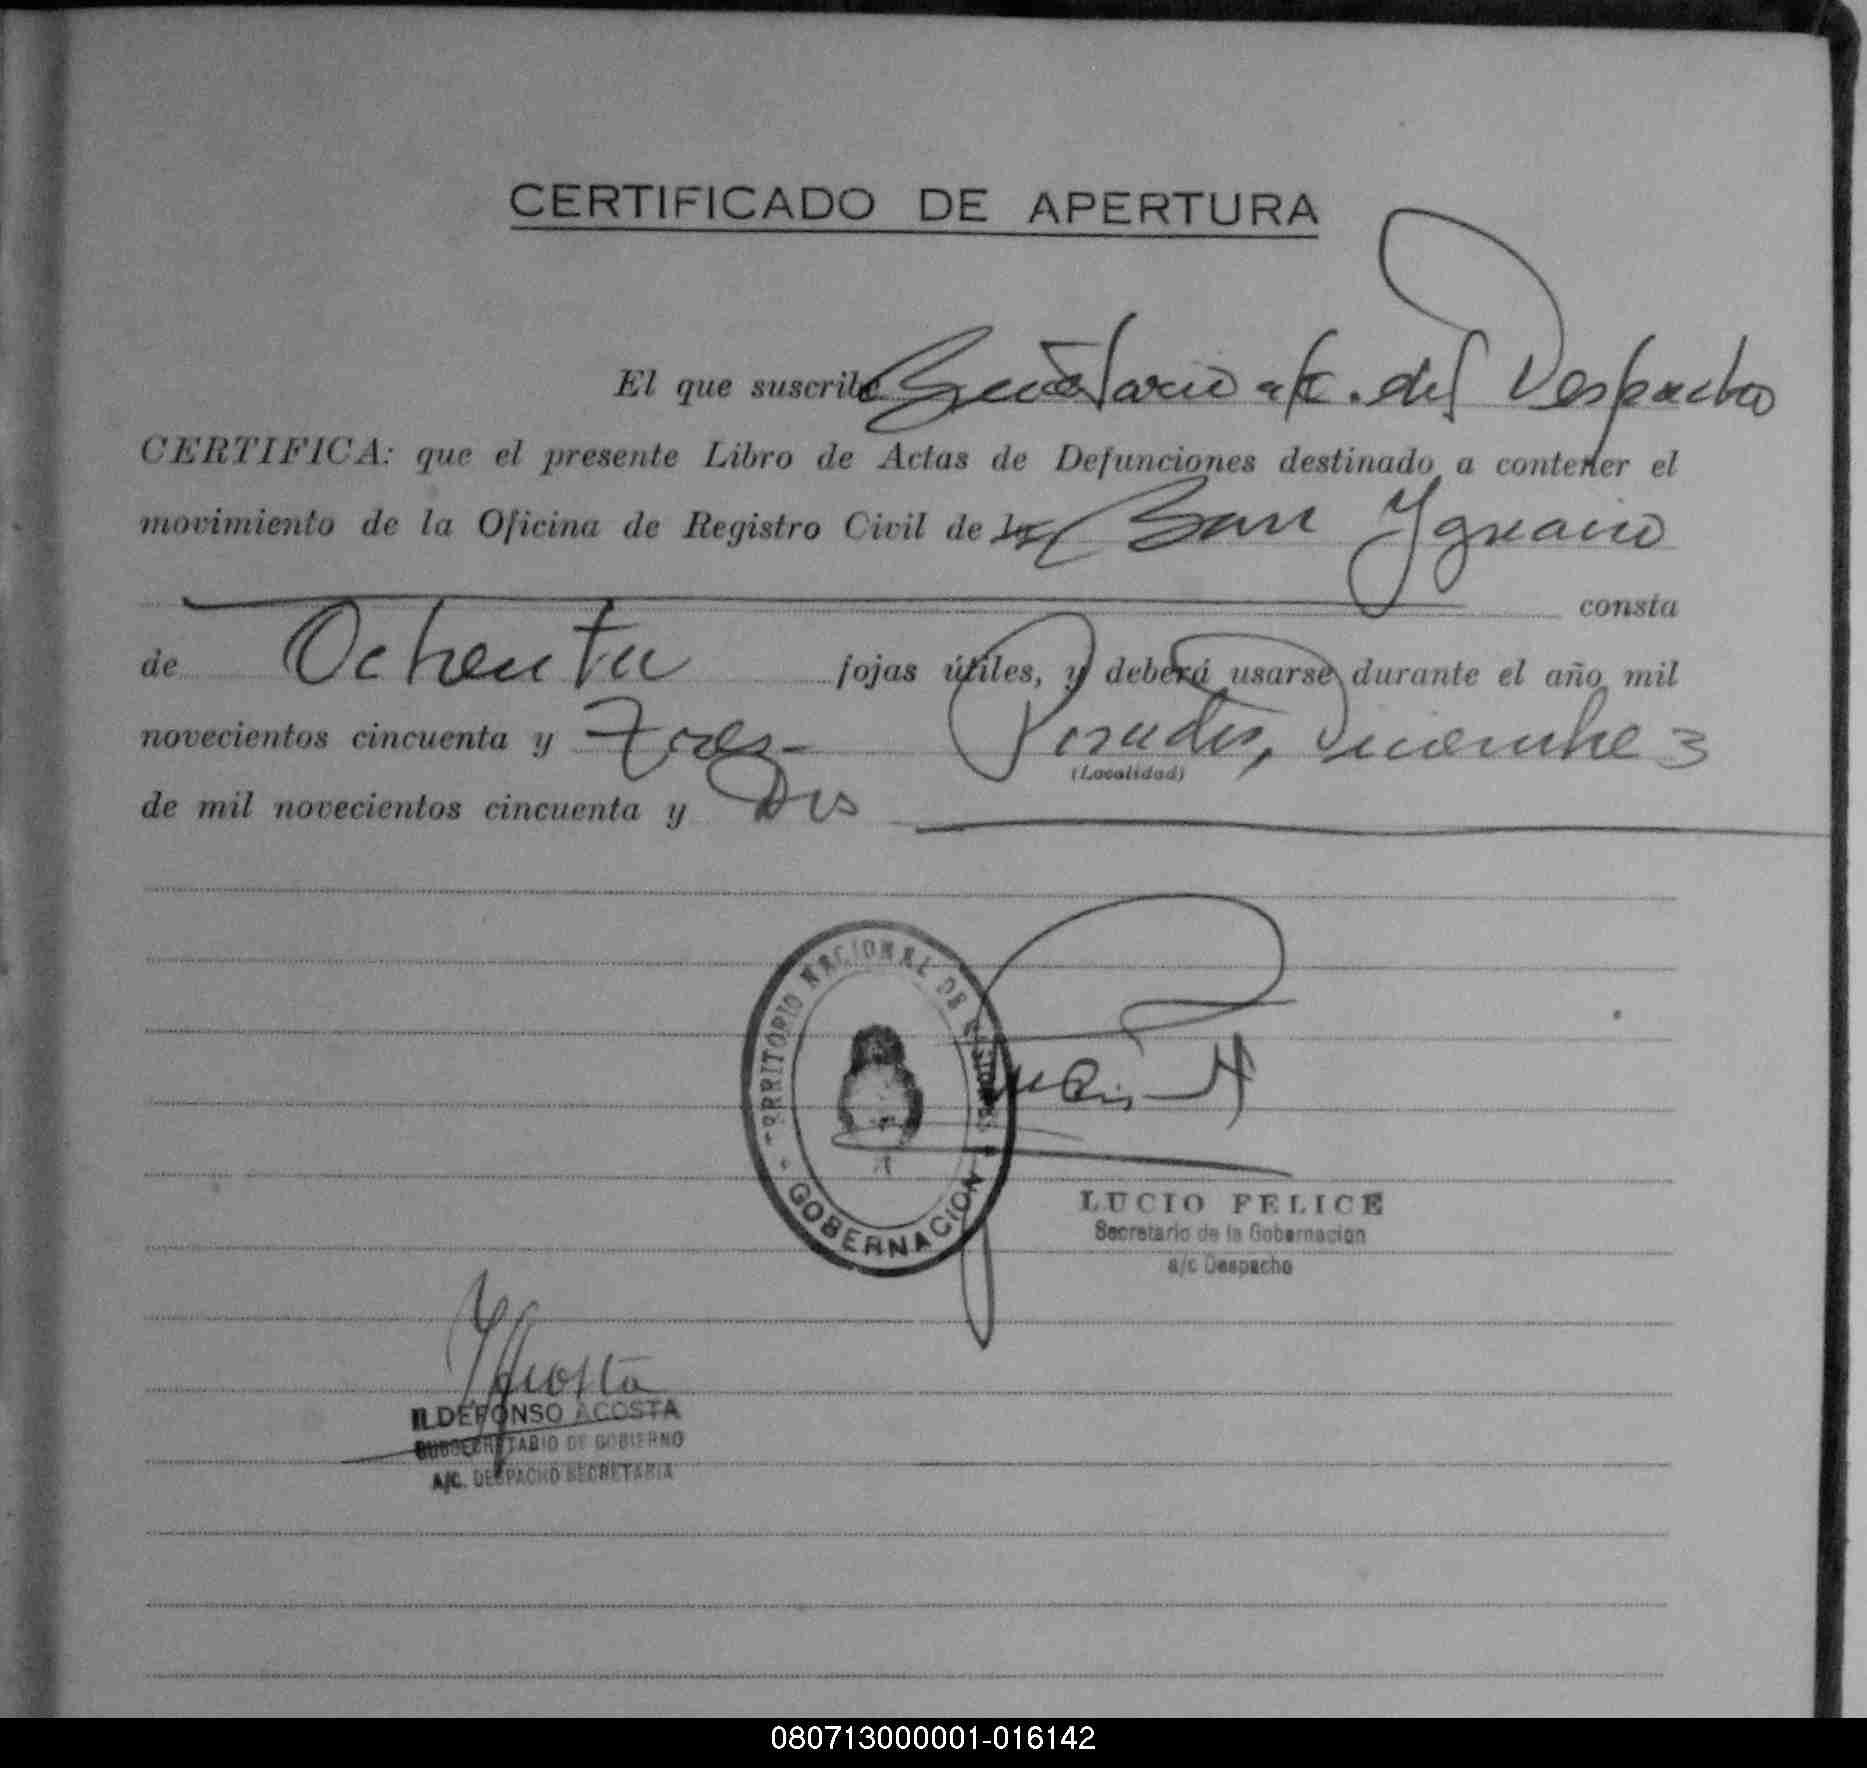 CERTIFICADO DE APERTURA
El que suscribe Secretario a/c. del Despacho
CERTIFICA: que el presente Libro de Actas de Defunciones destinado a contener el
movimiento de la Oficina de Registro Civil de San Ygnacio
consta
de Ochenta fojas útiles, y deberá usarse durante el año mil
novecientos cincuenta y Tres- Posadas, Diciembre 3
(Localidad)
de mil novecientos cincuenta y Dos
TERRITORIO NACIONAL DE MISIONES
GOBERNACION
LUCIO FELICE
Secretario de la Gobernacion
a/c Despacho
Acosta
ILDEFONSO ACOSTA
SUBSECRETARIO DE GOBIERNO
A/C. DESPACHO SECRETARIA
080713000001-016142